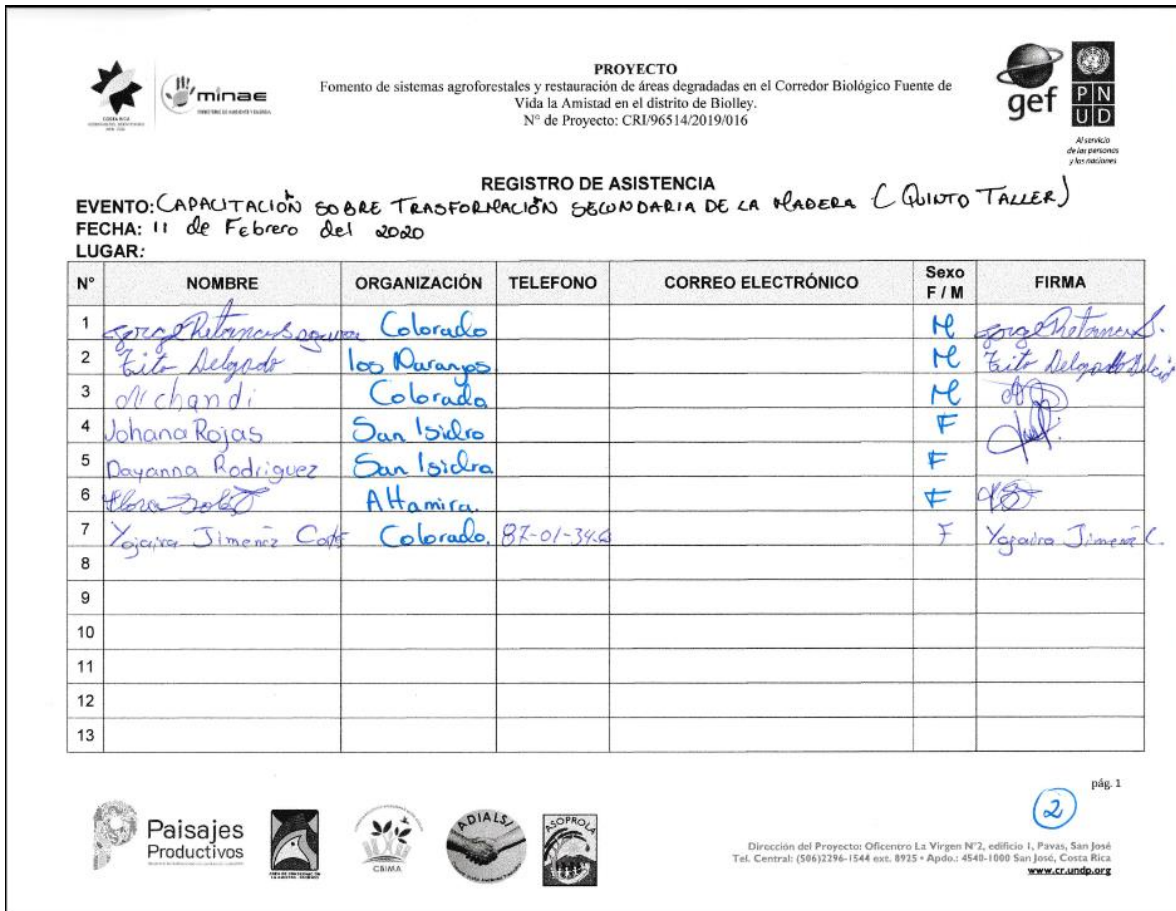 PROYECTO
Fomento de sistemas agroforestales y restauración de áreas degradadas en el Corredor Biológico Fuente de
Vida la Amistad en el distrito de Biolley.
N° de Proyecto: CRI/96514/2019/016
COSTA RICA
minae
MINISTERIO DE AMBIENTE Y ENERGÍA
gef
PN
UD
Al servicio
de las personas
y las naciones
REGISTRO DE ASISTENCIA
EVENTO: CAPACITACIÓN SOBRE TRASFORMACIÓN SECUNDARIA DE LA MADERA (QUINTO TALLER)
FECHA: 11 de Febrero del 2020
LUGAR:
N° NOMBRE ORGANIZACIÓN TELEFONO CORREO ELECTRÓNICO Sexo F / M FIRMA
1 Jorge Retana Segura Colorado M Jorge Retana S.
2 Tito Delgado los Naranjos M Tito Delgado
3 Colorado M
4 Johana Rojas San Isidro F
5 Dayanna Rodriguez San Isidro F
6 Altamira. F
7 Yojaira Jimenez Colorado. 87-01-34 F Yojaira Jimenez C.
8
9
10
11
12
13
pág. 1
2
Paisajes
Productivos
CBIMA
ADIALSI
ASOPROLA
Dirección del Proyecto: Oficentro La Virgen N°2, edificio 1, Pavas, San José
Tel. Central: (506)2296-1544 ext. 8925 • Apdo.: 4540-1000 San José, Costa Rica
www.cr.undp.org